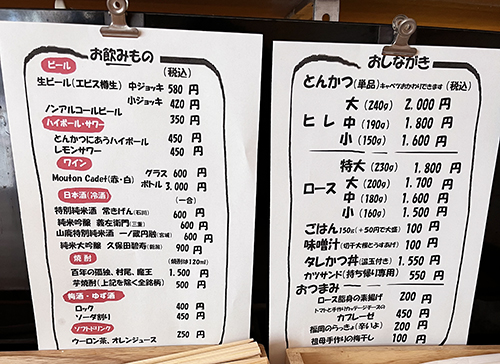 お飲みもの
(税込)
ビール
生ビール(エビス樽生) 中ジョッキ 580 円
小ジョッキ 420 円
ノンアルコールビール 350 円
ハイボール・サワー
とんかつにあうハイボール 450 円
レモンサワー 450 円
ワイン
Mouton Cadet(赤・白) グラス 600 円
ボトル 3.000 円
日本酒(冷酒) (一合)
特別純米酒 常きげん(石川) 600 円
純米吟醸 義左衛門(三重) 600 円
山廃特別純米酒 一ノ蔵円融(宮城) 600 円
純米大吟醸 久保田碧寿(新潟) 900 円
焼酎 (焼酎は120ml)
百年の孤独、村尾、魔王 1.500 円
芋焼酎(上記を除く全銘柄) 500 円
梅酒・ゆず酒
ロック 400 円
ソーダ割り 450 円
ソフトドリンク
ウーロン茶、オレンジジュース 250 円
おしながき
とんかつ(単品)キャベツおかわりできます (税込)
大 (240g) 2.000 円
ヒレ 中 (190g) 1.800 円
小 (150g) 1.600 円
特大 (230g) 1.800 円
ロース 大 (200g) 1.700 円
中 (180g) 1.600 円
小 (160g) 1.500 円
ごはん 150g(+50円で大盛) 100 円
味噌汁 (切干大根とうすあげ) 100 円
タレかつ丼(温玉付き) 1.550 円
カツサンド(持ち帰り専用) 550 円
おつまみ
ロース脂身の素揚げ 200 円
トマトと手作りカッテージチーズの
カプレーゼ 450 円
福岡のらっきょ(辛いよ) 200 円
祖母手作りの梅干し 100 円